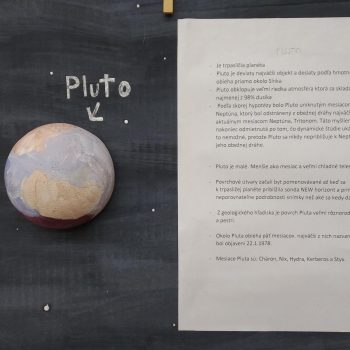 Pluto
PLUTO
- Je trpasličia planéta
- Pluto je deviaty najväčší objekt a desiaty podľa hmotn
obieha priamo okolo Slnka
- Pluto obklopuje veľmi riedka atmosféra ktorá sa sklad
najmenej z 98% dusíka
- Podľa skorej hypotézy bolo Pluto uniknutým mesiacom
Neptúna, ktorý bol odstránený z obežnej dráhy najväč
aktuálnym mesiacom Neptúna, Tritonom. Táto myšlien
nakoniec odmietnutá po tom, čo dynamické štúdie uká
to nemožné, pretože Pluto sa nikdy nepribližuje k Nept
jeho obežnej dráhe.
- Pluto je malé. Menšie ako mesiac a veľmi chladné teles
- Povrchové útvary začali byť pomenovávané až keď sa
k trpasličej planéte priblížila sonda NEW horizont a pri
neporovnateľne podrobnosti snímky než aké sa kedy
- Z geologického hľadiska je povrch Pluta veľmi rôznorod
a pestrí.
- Okolo Pluta obieha päť mesiacov. najväčší z nich nazvan
bol objavení 22.1.1978.
- Mesiace Pluta sú: Cháron, Nix, Hydra, Kerberos a Styx